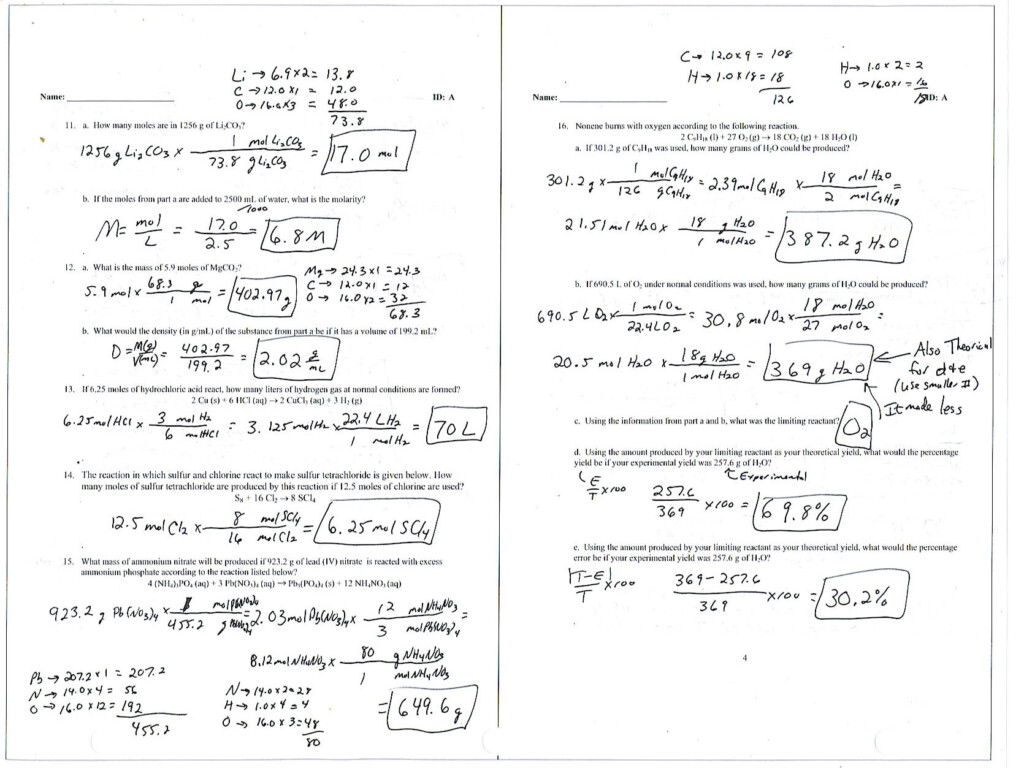 Li → 6.9x2 = 13.8
C → 12.0 x1 = 12.0
O → 16.0x3 = 48.0
73.8
Name:
ID: A
11. a. How many moles are in 1256 g of Li₂CO₃?
1256 g Li₂CO₃ x 1 mol Li₂CO₃ / 73.8 g Li₂CO₃ = 17.0 mol
b. If the moles from part a are added to 2500 mL of water, what is the molarity?
1000
M = mol / L = 17.0 / 2.5 = 6.8 M
12. a. What is the mass of 5.9 moles of MgCO₃?
Mg → 24.3 x1 = 24.3
C → 12.0x1 = 12
O → 16.0x2 = 32
68.3
5.9 mol x 68.3 g / 1 mol = 402.97 g
b. What would the density (in g/mL) of the substance from part a be if it has a volume of 199.2 mL?
D = M(g) / V(mL) = 402.97 / 199.2 = 2.02 g/mL
13. If 6.25 moles of hydrochloric acid react, how many liters of hydrogen gas at normal conditions are formed?
2 Cu (s) + 6 HCl (aq) → 2 CuCl₃ (aq) + 3 H₂ (g)
6.25 mol HCl x 3 mol H₂ / 6 mol HCl = 3.125 mol H₂ x 22.4 L H₂ / 1 mol H₂ = 70 L
14. The reaction in which sulfur and chlorine react to make sulfur tetrachloride is given below. How
many moles of sulfur tetrachloride are produced by this reaction if 12.5 moles of chlorine are used?
S₈ + 16 Cl₂ → 8 SCl₄
12.5 mol Cl₂ x 8 mol SCl₄ / 16 mol Cl₂ = 6.25 mol SCl₄
15. What mass of ammonium nitrate will be produced if 923.2 g of lead (IV) nitrate is reacted with excess
ammonium phosphate according to the reaction listed below?
4 (NH₄)₃PO₄ (aq) + 3 Pb(NO₃)₄ (aq) → Pb₃(PO₄)₄ (s) + 12 NH₄NO₃ (aq)
923.2 g Pb(NO₃)₄ x 1 mol Pb(NO₃)₄ / 455.2 g Pb(NO₃)₄ = 2.03 mol Pb(NO₃)₄ x 12 mol NH₄NO₃ / 3 mol Pb(NO₃)₄ =
8.12 mol NH₄NO₃ x 80 g NH₄NO₃ / 1 mol NH₄NO₃
= 649.6 g
Pb → 207.2 x 1 = 207.2
N → 14.0 x 4 = 56
O → 16.0 x 12 = 192
455.2
N → 14.0 x 2 = 28
H → 1.0 x 4 = 4
O → 16.0 x 3 = 48
80
C → 12.0 x 9 = 108
H → 1.0 x 18 = 18
126
H → 1.0 x 2 = 2
O → 16.0x1 = 16
18
Name:
ID: A
16. Nonene burns with oxygen according to the following reaction.
2 C₉H₁₈ (l) + 27 O₂ (g) → 18 CO₂ (g) + 18 H₂O (l)
a. If 301.2 g of C₉H₁₈ was used, how many grams of H₂O could be produced?
301.2 g x 1 mol C₉H₁₈ / 126 g C₉H₁₈ = 2.39 mol C₉H₁₈ x 18 mol H₂O / 2 mol C₉H₁₈ =
21.51 mol H₂O x 18 g H₂O / 1 mol H₂O = 387.2 g H₂O
b. If 690.5 L of O₂ under normal conditions was used, how many grams of H₂O could be produced?
690.5 L O₂ x 1 mol O₂ / 22.4 L O₂ = 30.8 mol O₂ x 18 mol H₂O / 27 mol O₂ =
20.5 mol H₂O x 18 g H₂O / 1 mol H₂O = 369 g H₂O
Also Theorical
for d+e
(use smaller #)
It made less
c. Using the information from part a and b, what was the limiting reactant?
O₂
d. Using the amount produced by your limiting reactant as your theoretical yield, what would the percentage
yield be if your experimental yield was 257.6 g of H₂O?
Experimental
E / T x100
257.6 / 369 x100 = 69.8%
e. Using the amount produced by your limiting reactant as your theoretical yield, what would the percentage
error be if your experimental yield was 257.6 g of H₂O?
|T-E| / T x100
369-257.6 / 369 x100 = 30.2%
4